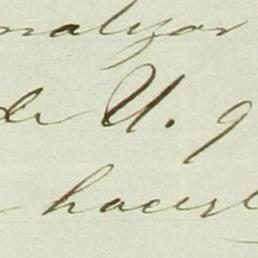 nalizar
de U. q
hacerl